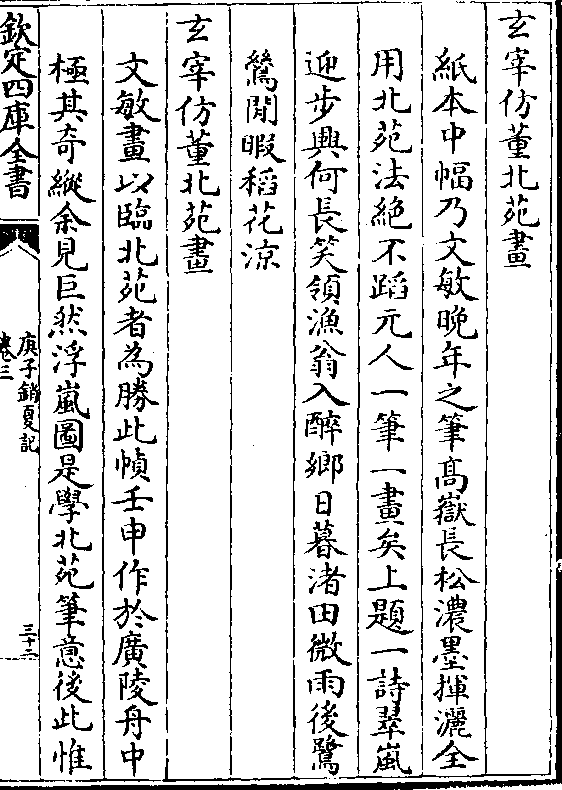 玄宰仿董北苑畫
紙本中幅乃文敏晚年之筆高嶽長松濃墨揮灑全
用北苑法絶不蹈元人一筆一畫矣上題一詩翠嵐
迎步興何長笑領漁翁入醉鄉日暮渚田微雨後鷺
鷥閒暇稻花涼
玄宰仿董北苑畫
文敏畫以臨北苑者為勝此幀壬申作於廣陵舟中
極其奇縱余見巨然浮嵐圖是學北苑筆意後此惟
欽定四庫全書
庚子銷夏記
卷三
三十二